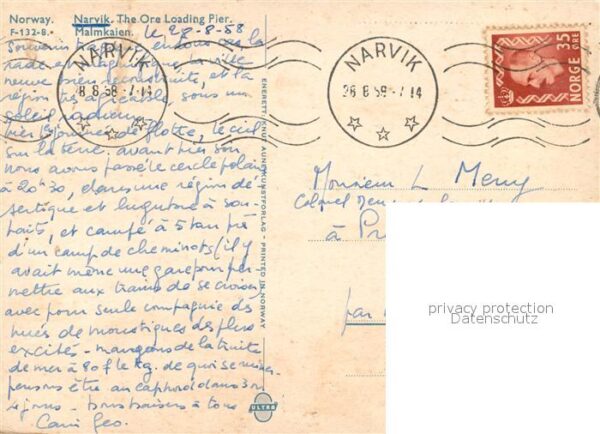 Norway.
F-132-8.
Narvik. The Ore Loading Pier.
Malmkaien.
le 28-8-58
Souvenir
rade et la ville
neuve bien reconstruite, et la
région très agréable, sous un
soleil radieux.
hier
sur la terre, avant hier soir
nous avons passé le cercle polaire
à 20h30, dans une région dé-
sertique et lugubre à sou-
hait, et campé à 5 km près
d'un camp de cheminots (il y
avait même une gare pour per-
mettre aux trains de se croiser)
avec pour seule compagnie des
nuées de moustiques des plus
excités - mangeons de la truite
de mer à 80f le kg. de qui se
pensons être au cap nord dans 3
jours - bons baisers à tous
Geo.
ENERETT KNUT AUNE KUNSTFORLAG - PRINTED IN NORWAY
ULTRA
NARVIK
8 58 -7 14
NARVIK
26 8 58 -7 14
NORGE
35 ØRE
Monsieur L Meny
Colonel
à Pr
par
privacy protection
Datenschutz